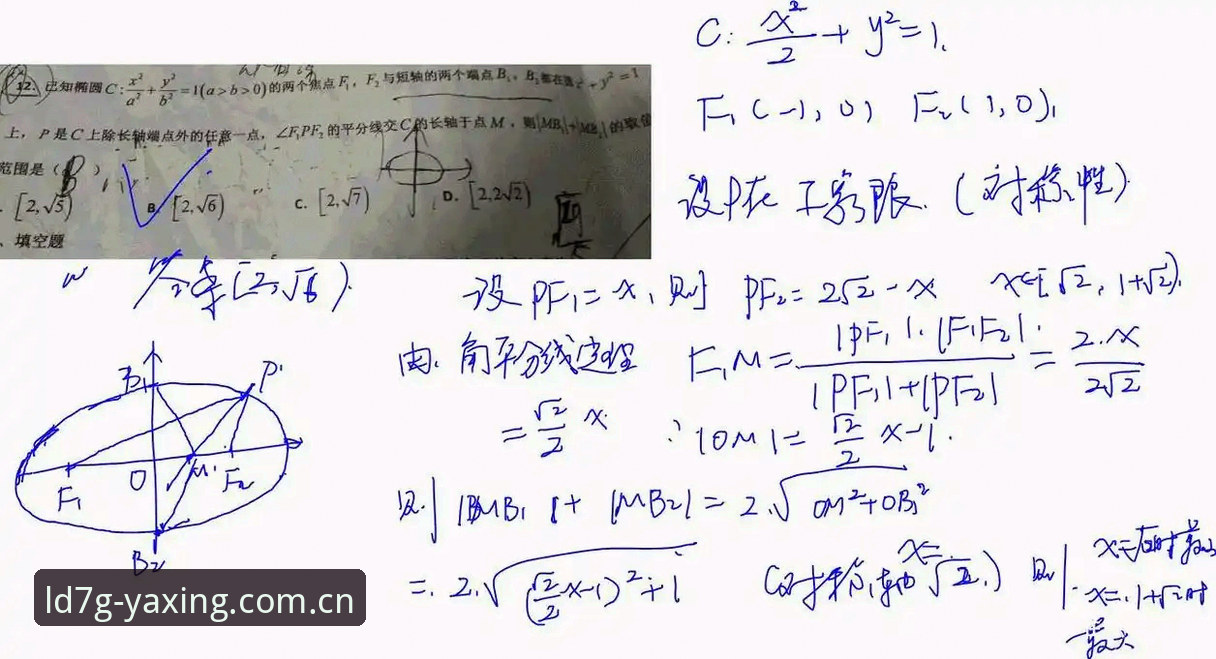 C: x²/2 + y² = 1.
12. 已知椭圆 C: x²/a² + y²/b² = 1(a > b > 0)的两个焦点 F₁, F₂ 与短轴的两个端点 B₁, B₂ 都在 x² + y² = 1
上, P 是 C 上除长轴端点外的任意一点, ∠F₁PF₂ 的平分线交 C 的长轴于点 M, 则|MB₁|+|MB₂|的取值
范围是(B)
[2,√5) B. [2,√6) C. [2,√7) D. [2,2√2)
、填空题
F₁(-1, 0) F₂(1, 0),
设P在 (对称性)
答案[2,√6).
设 PF₁ = x, 则 PF₂ = 2√2 - x x∈[√2, 1+√2).
由 角平分线定理 F₁M = |PF₁|·|F₁F₂| / |PF₁|+|PF₂| = 2·x / 2√2
= √2/2 x ∴ |OM| = √2/2 x-1.
则 |MB₁| + |MB₂| = 2√OM²+OB₁²
= 2√(√2/2 x-1)²+1 (对称轴 x=√2.) 则 x=√2时最小
x=1+√2时
最大
B₁ P
F₁ O M F₂
B₂
ld7g-yaxing.com.cn